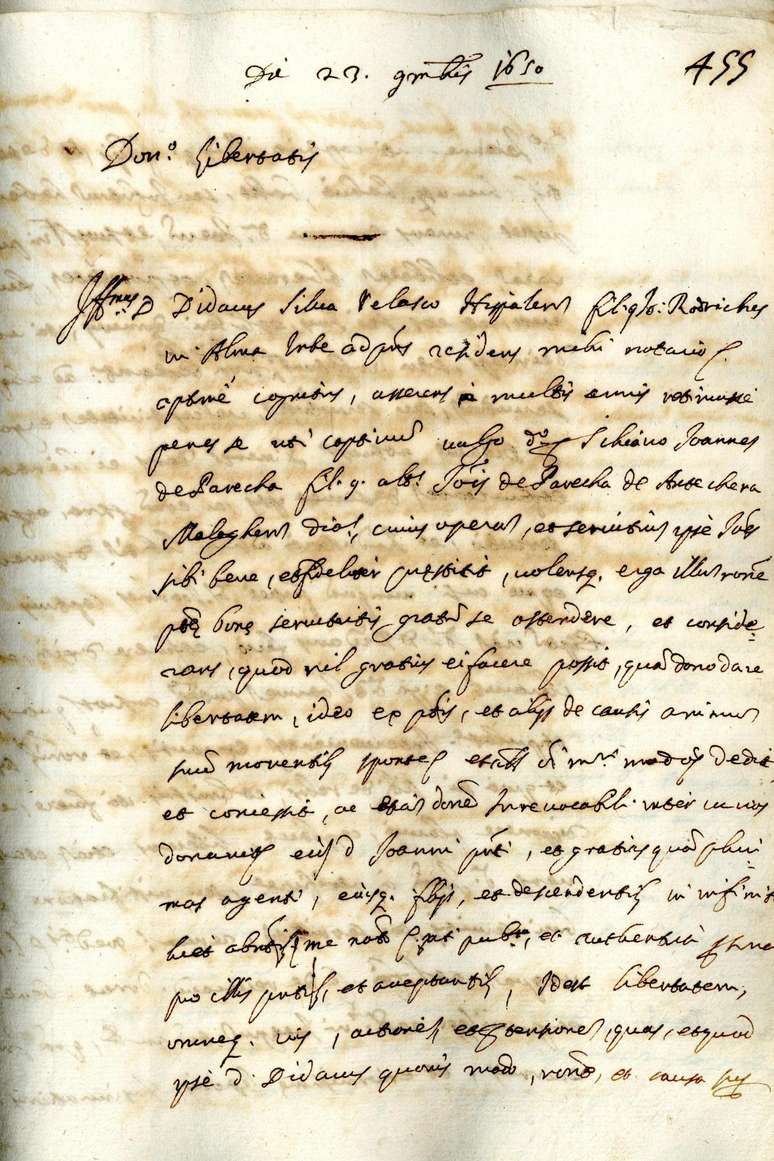 Die 23. 9mbris 1650
455
Don.o Libertatis
Ill.mus D Didacus Silua Velasco Hispalens fil. q. Jo: Rodriches
in Alma Urbe ad pns residens mihi notario
optime cognitus, asserens a multis annis retinuisse
penes se uti captiuu uulgo do Schiauo Joannes
de Parecha fil. q. alt. Jois de Parecha de Antechera
Malaghen dioc., cuius operas, et seruitium ipse Joes
sibi bene, et fideliter prestitit, uolensq. erga illum rone
pte bone seruitutis gratu se ostendere, et conside
rans, quod nil gratius ei facere possit, qua dono dare
libertatem, ideo ex ptis, et alijs de causis animum
suu mouentib sponte et als oi mri modo dedit
et concessit, ac titulo donis Irreuocabilr inter uiuos
donauit eid d Joanni pnti, et gratias qua pluri
mas agenti, eiusq. filijs, et descendentib in infinit
licet absentib me noto pub.co, et authentica
pro illis pntib, et acceptantib, Idest libertatem,
omneq. ius, actiones et Intensiones, quas, et quod
ipse d. Didacus quouis modo, rone, et causa